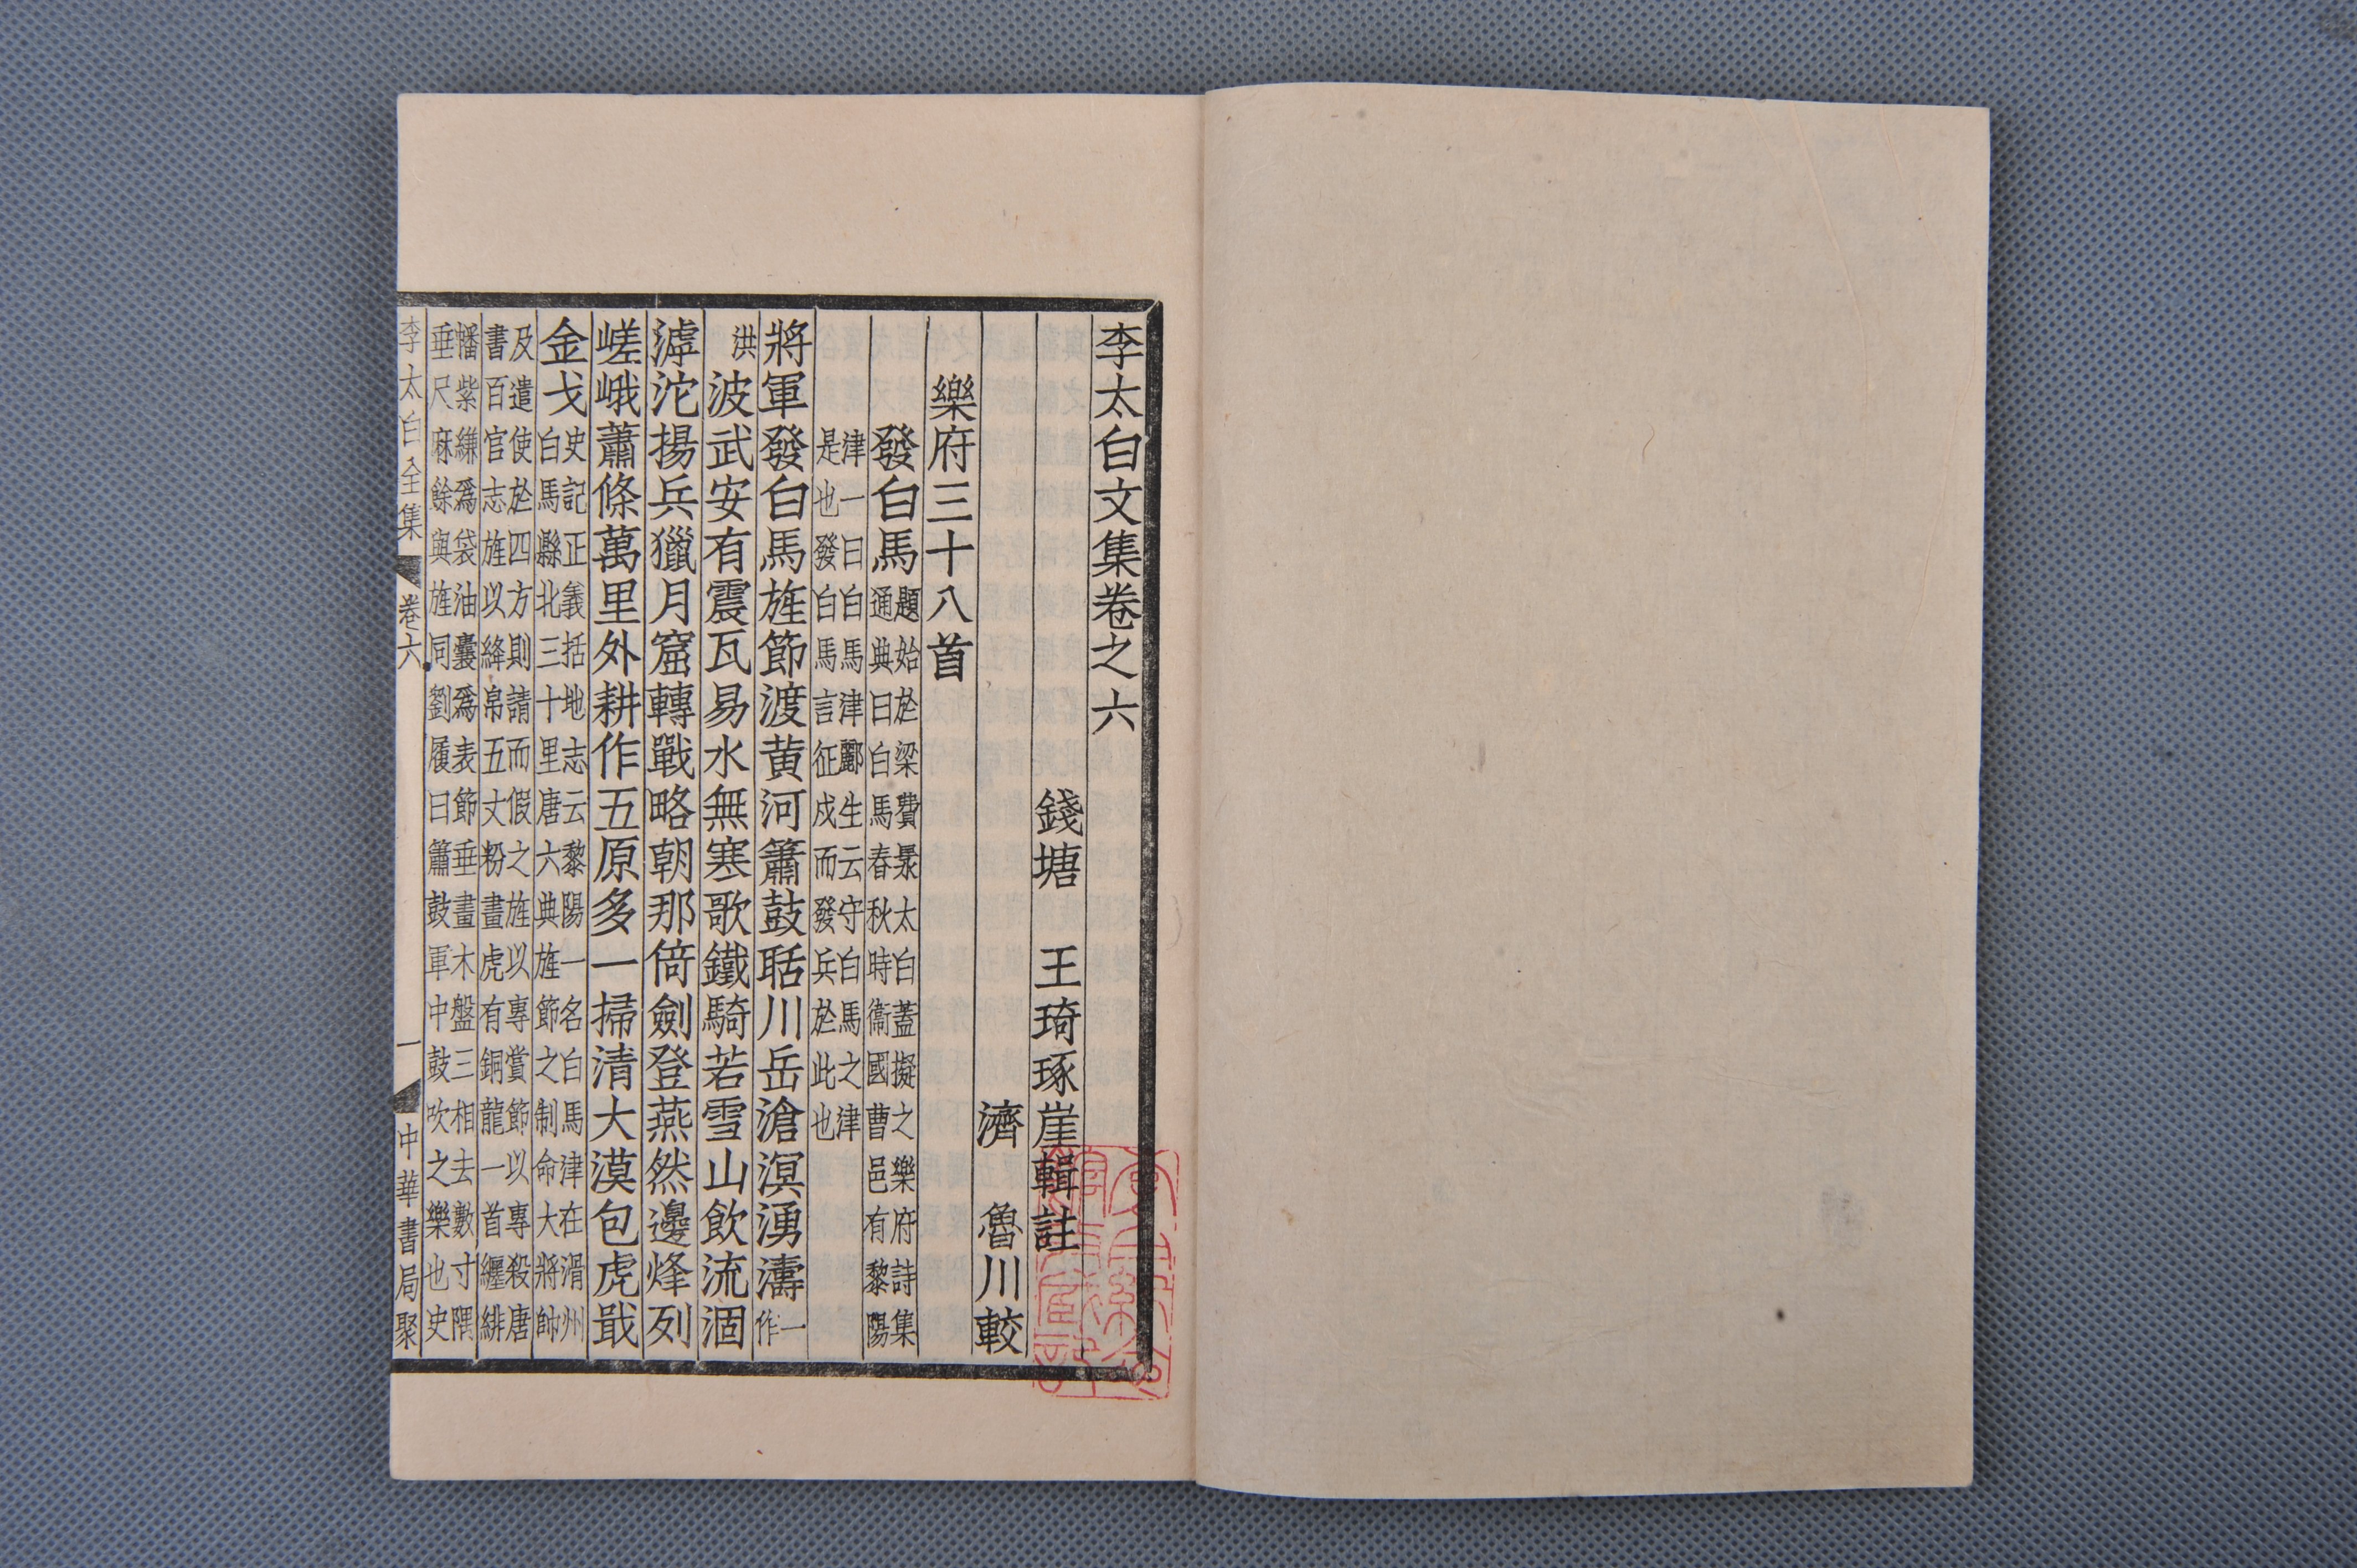 李太白文集卷之六
錢塘 王琦琢崖輯註
濟 魯川較
樂府三十八首
發白馬 題始於梁費㫤太白蓋擬之樂府詩集
通典曰白馬春秋時衞國曹邑有黎陽
津一曰白馬津酈生云守白馬之津
是也發白馬言征戍而發兵於此也
將軍發白馬旌節渡黃河簫鼓聒川岳滄溟湧濤一
作
洪波武安有震瓦易水無寒歌鐵騎若雪山飲流涸
滹沱揚兵獵月窟轉戰略朝那倚劍登燕然邊烽列
嵯峨蕭條萬里外耕作五原多一掃清大漠包虎戢
金戈 史記正義括地志云黎陽一名白馬津在滑州
白馬縣北三十里唐六典旌節之制命大將帥
及遣使於四方則請而假之旌以專賞節以專殺唐
書百官志旌以絳帛五丈粉畫虎有銅龍一首纏緋
旛紫縑爲袋油囊爲表節垂畫木盤三相去數寸隅
垂尺麻餘與旌同劉履曰簫鼓軍中鼓吹之樂也史
李太白全集 卷六 一 中華書局聚